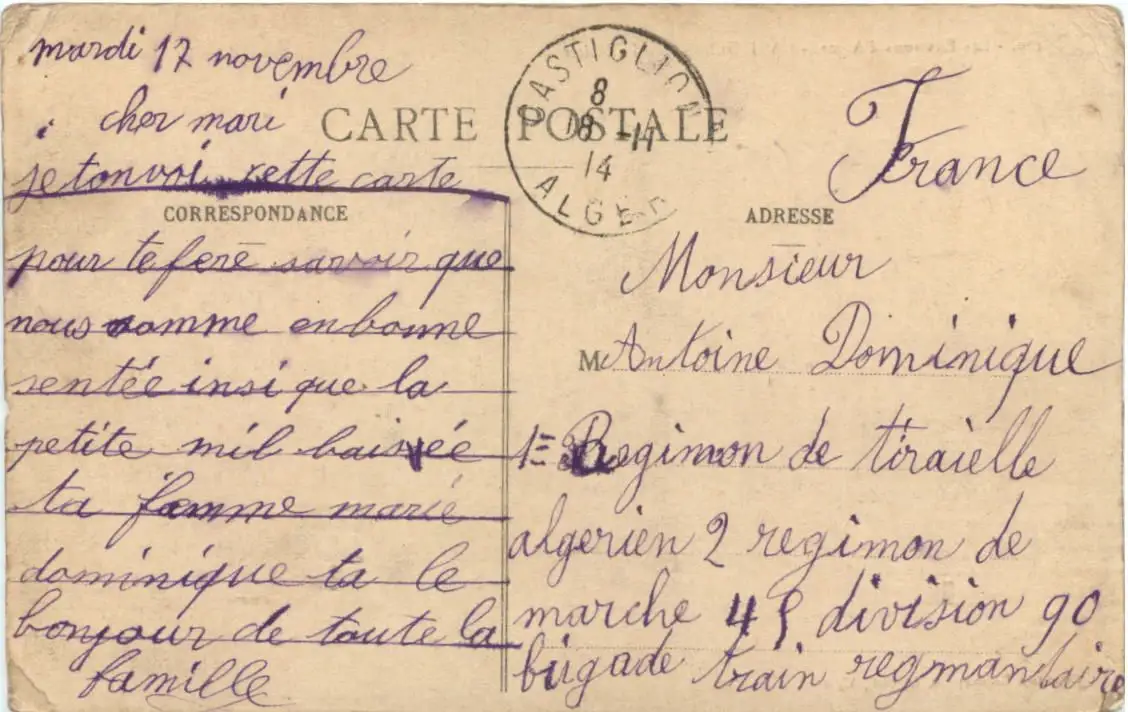 mardi 17 novembre
cher mari
je tonvoi cette carte
pour te fere savoir que
nous somme en bonne
sentée insi que la
petite mil baisée
ta famme marie
dominique ta le
bonjour de toute la
famille
CARTE POSTALE
CORRESPONDANCE
CASTIGLION
8
18 -11
14
ALGER
France
ADRESSE
Monsieur
M Antoine Dominique
1= Regimon de tiraielle
algerien 2 regimon de
marche 45 division 90
bigade train regmantaire